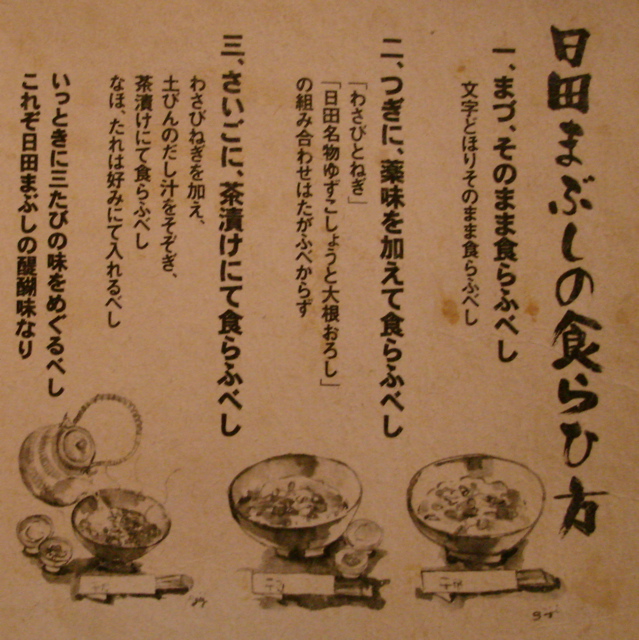 日田まぶしの食らひ方
一、まづ、そのまま食らふべし
文字どほりそのまま食らふべし
二、つぎに、薬味を加えて食らふべし
「わさびとねぎ」
「日田名物ゆずこしょうと大根おろし」
の組み合わせはたがふべからず
三、さいごに、茶漬けにて食らふべし
わさびねぎを加え、
土びんのだし汁をそそぎ、
茶漬けにて食らふべし
なほ、たれは好みにて入れるべし
いっときに三たびの味をめぐるべし
これぞ日田まぶしの醍醐味なり